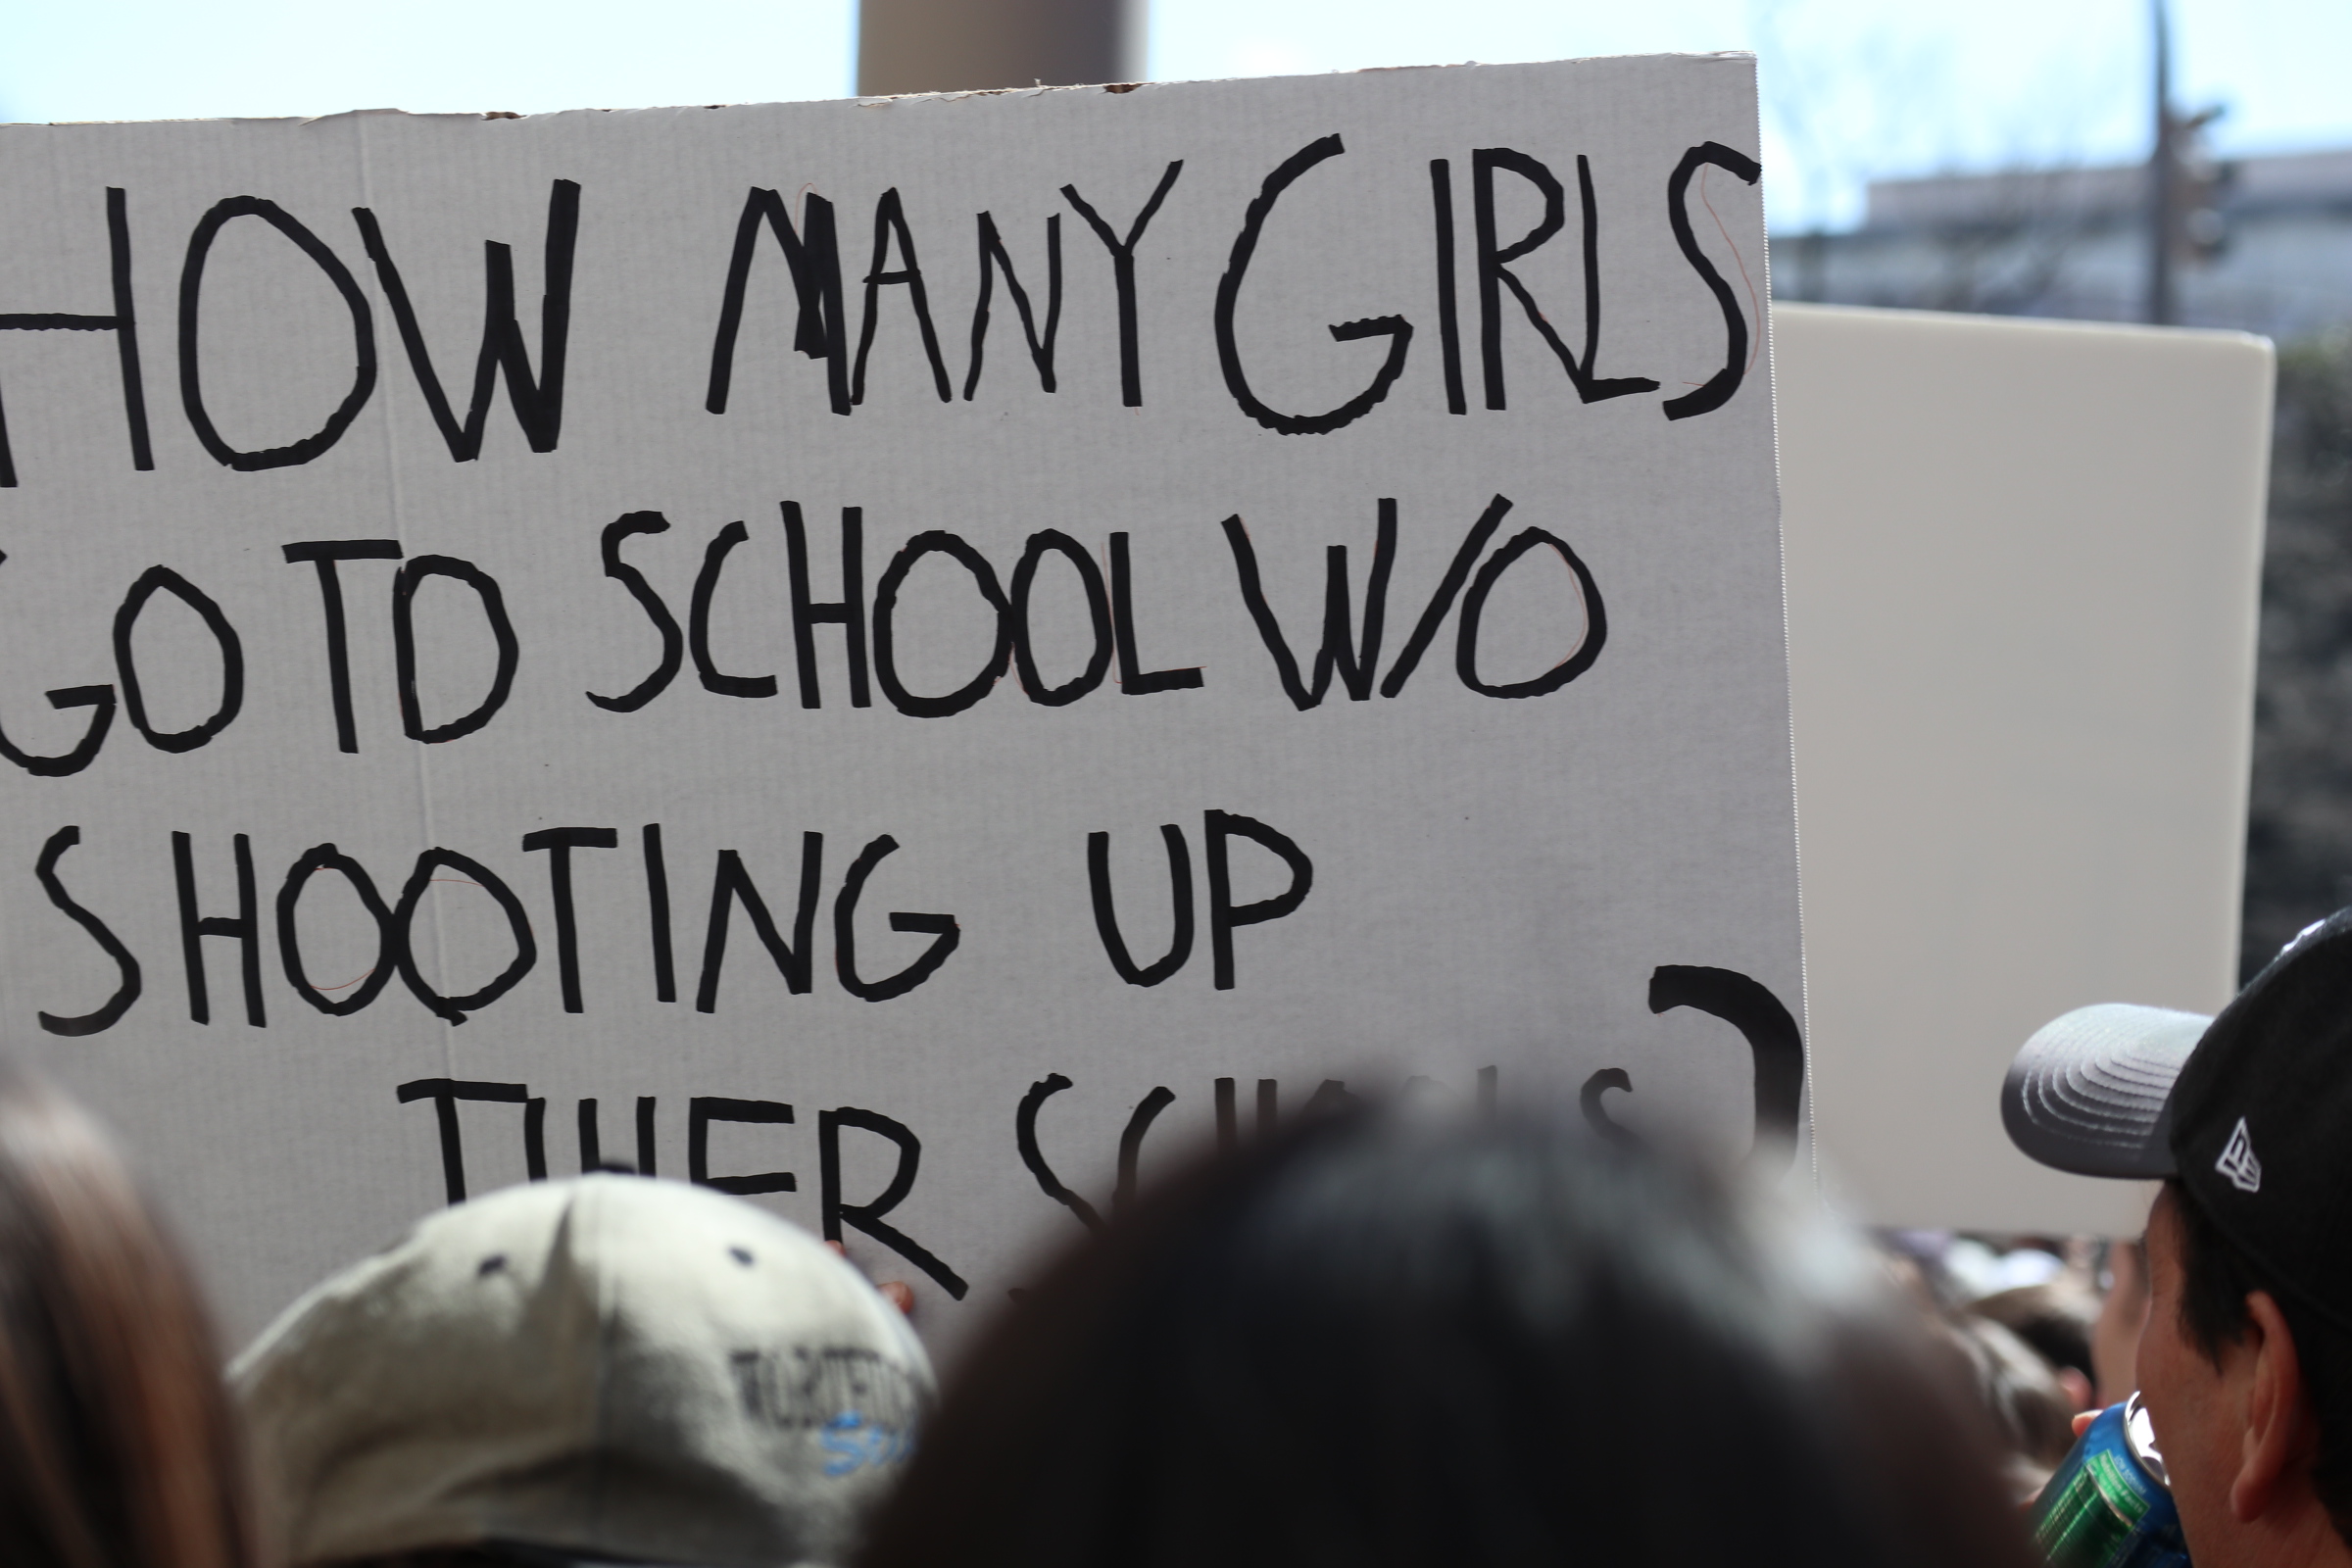 HOW MANY GIRLS
GO TO SCHOOL W/O
SHOOTING UP
THER SCHOOLS?